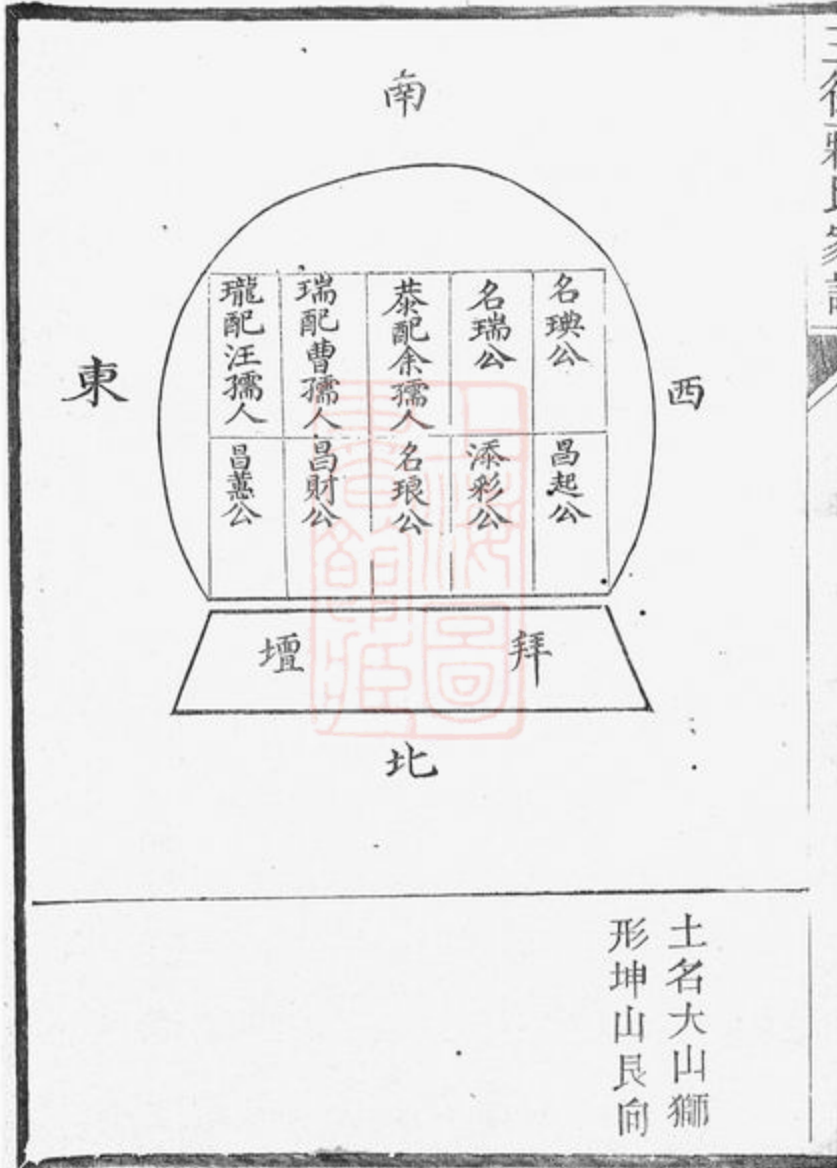 南
西
東
名琠公
名瑞公
恭配余孺人
瑞配曹孺人
瓏配汪孺人
昌起公
添彩公
名琅公
昌財公
昌蕙公
拜壇
北
土名大山獅
形坤山艮向
上海圖書館藏